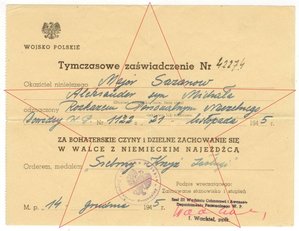 WOJSKO POLSKIE
Tymczasowe zaświadczenie Nr 42274
Okaziciel niniejszego Major Sazanow
Aleksander syn Michała
odznaczony Rozkazem Personalnym Naczelnego
Dowódcy W.P. 1122 z 21 listopada 1945
ZA BOHATERSKIE CZYNY i DZIELNE ZACHOWANIE SIĘ
W WALCE Z NIEMIECKIM NAJEŹDZCĄ
Orderem, medalem Srebrny Krzyż Zasługi
Podpis wręczającego:
Zaznaczone stanowisko i stopień
M. p. 14 grudnia 1945
Szef III Wydziału Odznaczeń i Awansów
Departamentu Personalnego W. P.
I. Wachtel, ppłk.